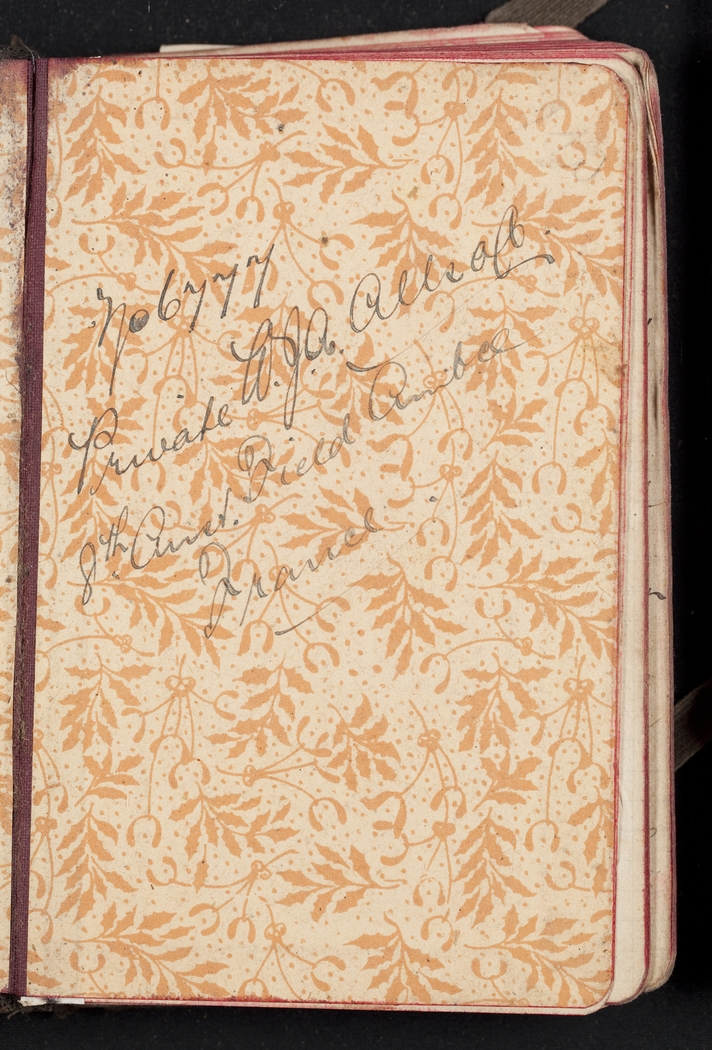 No 6777
Private W.J.A. Allsop
8th Aust. Field Ambce
France